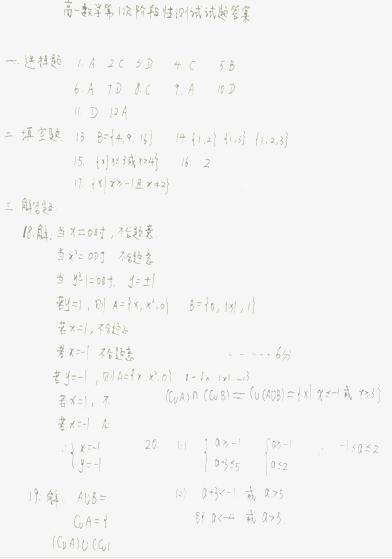 高一数学第1次阶段性测试试题答案
一. 选择题 1. A 2. C 3. D 4. C 5. B
6. A 7. D 8. C 9. A 10. D
11. D 12. A
二. 填空题 13. B={4, 9, 16} 14. {1,2} {1,3} {1,2,3}
15. {x|x≤3或x>4} 16. 2
17. {x|x≥-1且x≠2}
三. 解答题
18. 解, 当x=0时, 不合题意
当x²=0时 不合题意
当y²-1=0时, y=±1
若y=1, 则A={x, x², 0} B={0, |x|, 1}
若x=1, 不合题意
若x=-1 不合题意 ······6分
若y=-1, 则A={x, x², 0}
若x=1, 不
若x=-1
∴ { x=-1
y=-1
(CuA)∩(CuB)=Cu(A∪B)={x|x≤-1或x≥3}
20. (1) { a≥-1
a+3≤5 { a≥-1
a≤2 ∴ -1≤a≤2
(2) a+3<-1 或 a>5
即 a<-4 或 a>5
19. 解 A∪B=
CuA={
(CuA)∪(Cu